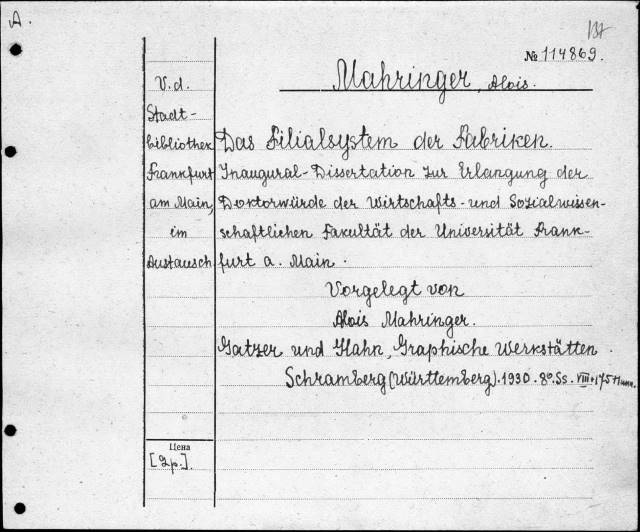 A.
№ 114869.
Mahringer, Alois.
V. d.
Stadt-
bibliothek
Frankfurt
am Main,
im
Austausch
Das Filialsystem der Fabriken.
Inaugural-Dissertation zur Erlangung der
Doktorwürde der Wirtschafts- und Sozialwissen-
schaftlichen Fakultät der Universität Frank-
furt a. Main.
Vorgelegt von
Alois Mahringer.
Gatzer und Hahn, Graphische Werkstätten
Schramberg (Württemberg). 1930. 8° Ss. VIII + 175
Цена
[2p.].